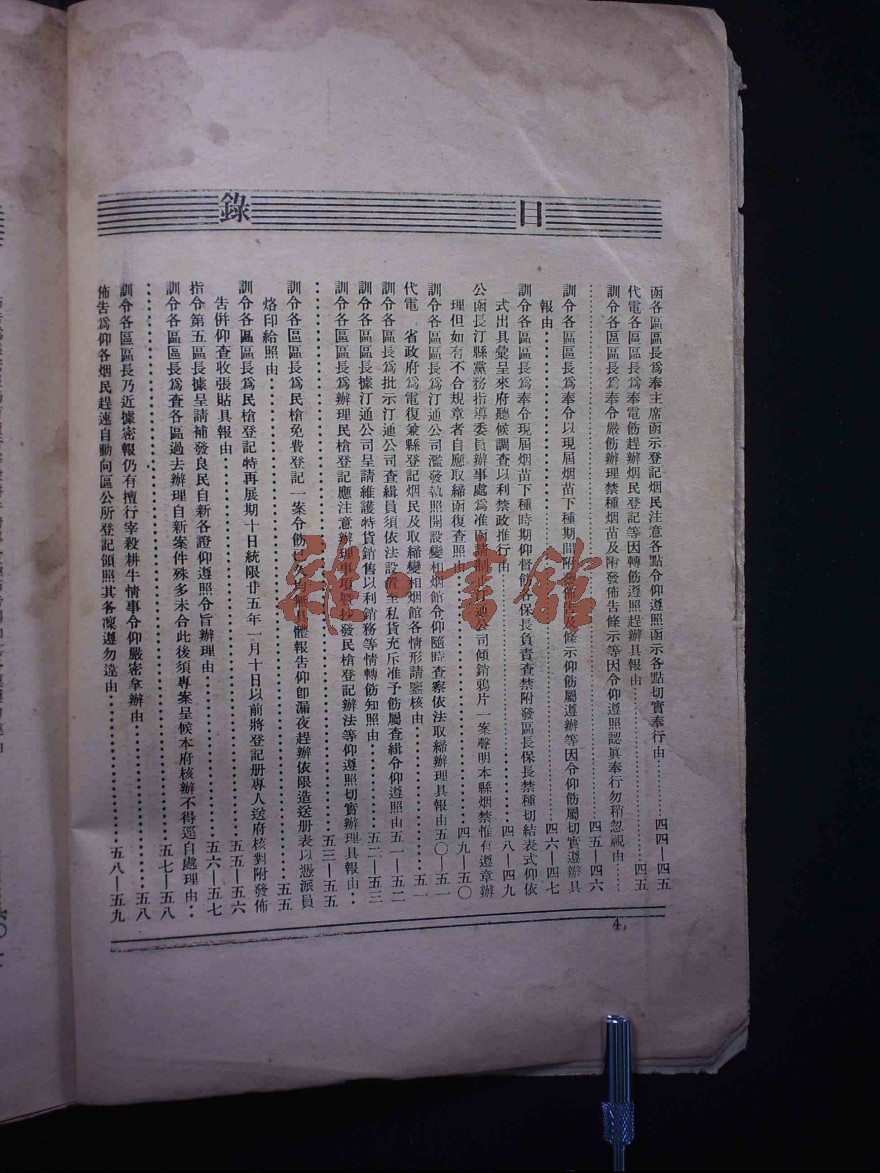 目錄
函各區區長爲奉主席函示登記烟民注意各點令仰遵照函示各點切實奉行由……四四—四五
代電各區區長爲奉電飭趕辦烟民登記等因轉飭遵照趕辦具報由……四五
訓令各區區長爲奉令嚴飭辦理禁種烟苗及附發佈告條示等因令仰遵照認眞奉行勿稍忽視由……
……四五—四六
訓令各區區長爲奉令以現屆烟苗下種期間附發佈告及條示仰飭屬遵辦等因令仰飭屬切實遵辦具
報由……四六—四七
訓令各區區長爲奉令現屆烟苗下種時期仰督飭各保長負責查禁附發區長保長禁種切結表式仰依
式出具彙呈來府聽候調查以利禁政推行由……四八—四九
公函長汀縣黨務指導委員辦事處爲准函請制止汀通公司傾銷鴉片一案聲明本縣烟禁惟有遵章辦
理但如有不合規章者自應取締函復查照由……四九—五〇
訓令各區區長爲汀通公司濫發執照開設變相烟館令仰隨時查察依法取締辦理具報由五〇—五一
代電 省政府爲電復兼縣登記烟民及取締變相烟館各情形請鑒核由……五一
訓令各區長爲批示汀通公司查緝員須依法設置至私貨充斥准予飭屬查緝令仰遵照由五一—五二
訓令各區區長據汀通公司呈請維護特貨銷售以利銷務等情轉飭知照由……五二—五三
訓令各區區長爲辦理民槍登記應注意辦理事項暨抄發民槍登記辦法等仰遵照切實辦理具報由……
……五三—五五
訓令各區區長爲民槍免費登記一案令飭已久均無具體報告仰卽漏夜趕辦依限造送册表以憑派員
烙印給照由……五五
訓令各區區長爲民槍登記特再展期十日統限廿五年一月十日以前將登記册專人送府核對附發佈
告併仰查收張貼具報由……五五—五六
指令第五區長據呈請補發良民自新各證仰遵照令旨辦理由……五六—五七
訓令各區區長爲查各區過去辦理自新案件殊多未合此後須專案呈候本府核辦不得逕自處理由……
……五七—五八
訓令各區區長乃近據密報仍有擅行宰殺耕牛情事令仰嚴密拿辦由……五八
佈告爲仰各烟民趕速自動向區公所登記領照其各凜遵勿違由……五八—五九
4
雜書館